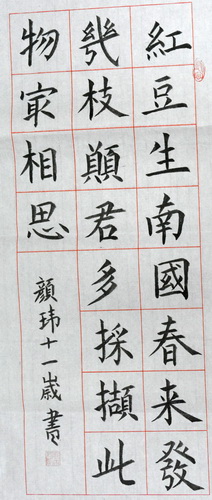 紅豆生南國春来發
幾枝顚君多採擷此
物㝡相思
顏玮十一歲書